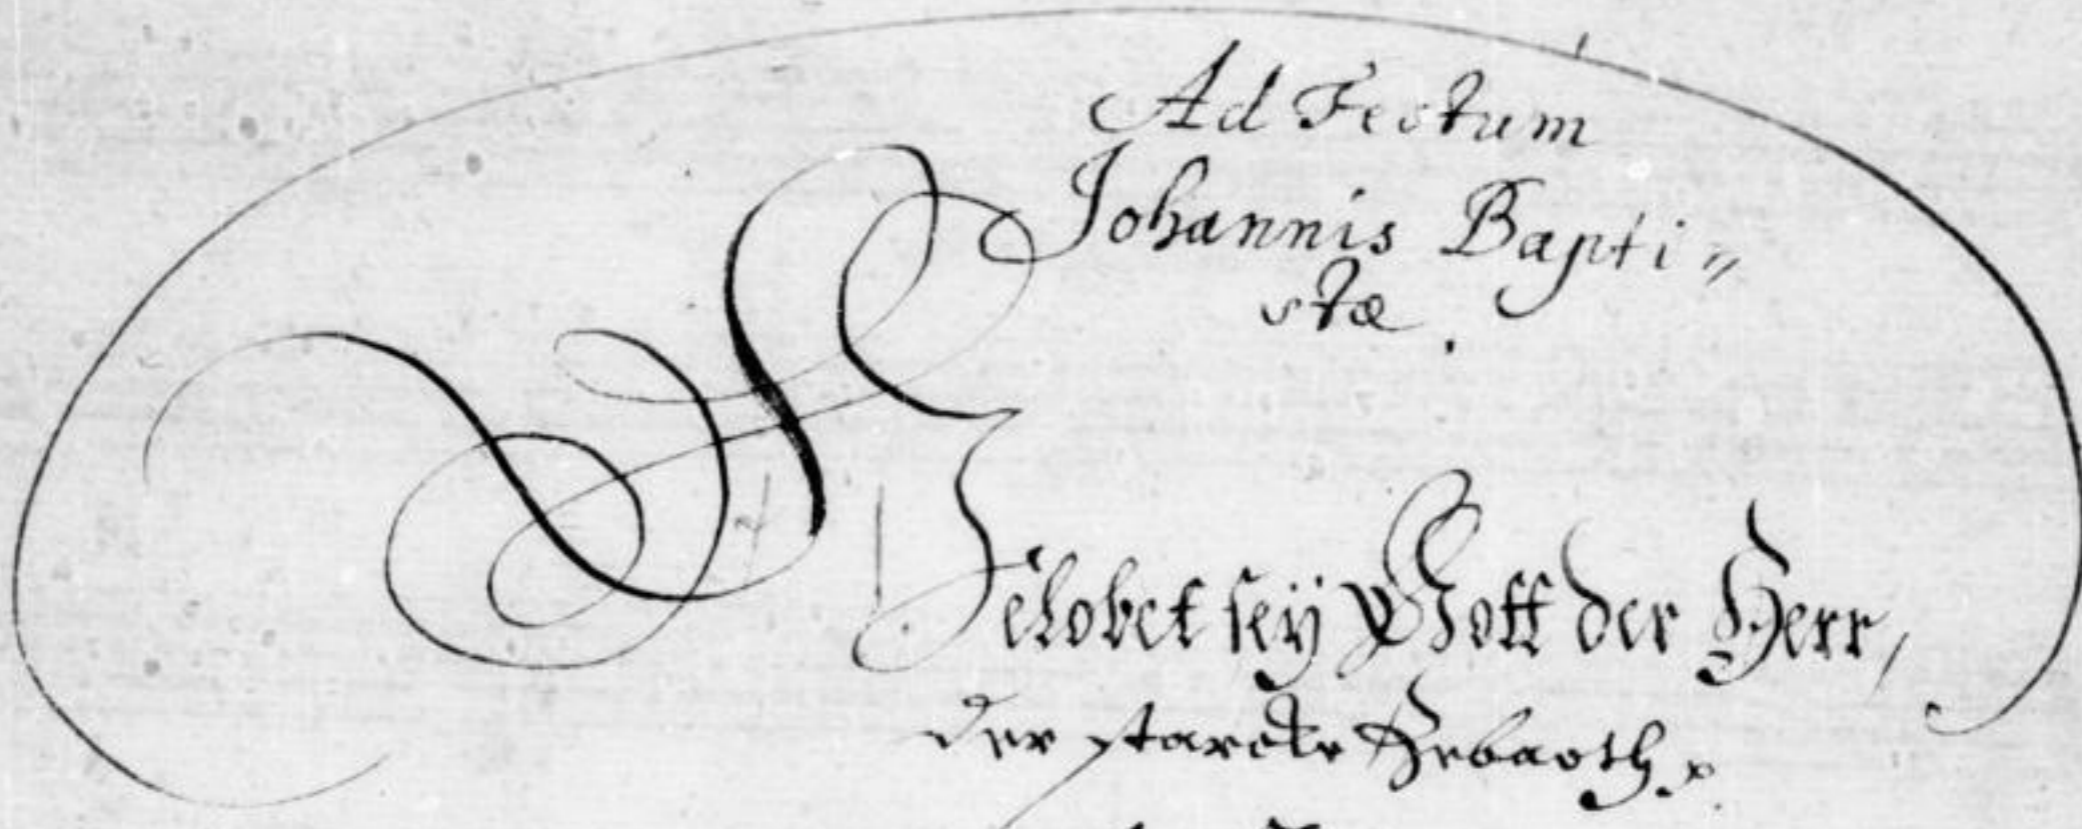 Ad Festum
Johannis Bapti〃
stæ.
Gelobet seÿ Gott der Herr,
der starcke Zebaoth